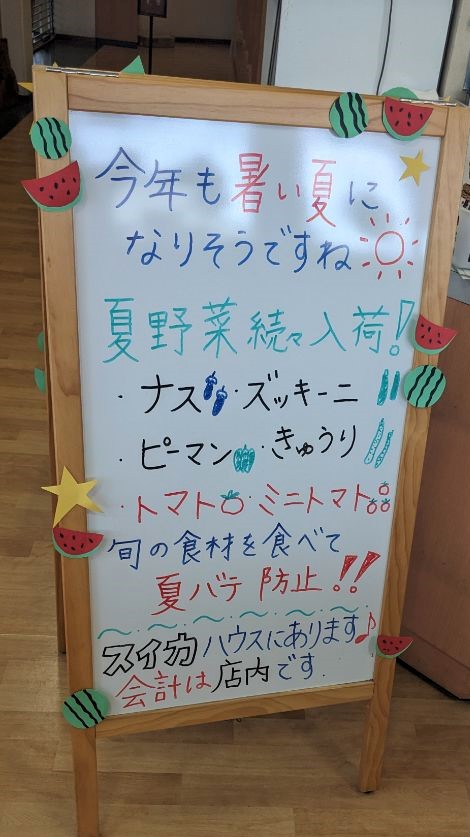 今年も暑い夏に
なりそうですね
夏野菜続々入荷!
・ナス ・ズッキーニ
・ピーマン ・きゅうり
・トマト ・ミニトマト
旬の食材を食べて
夏バテ防止!!
スイカハウスにあります♪
会計は店内です.